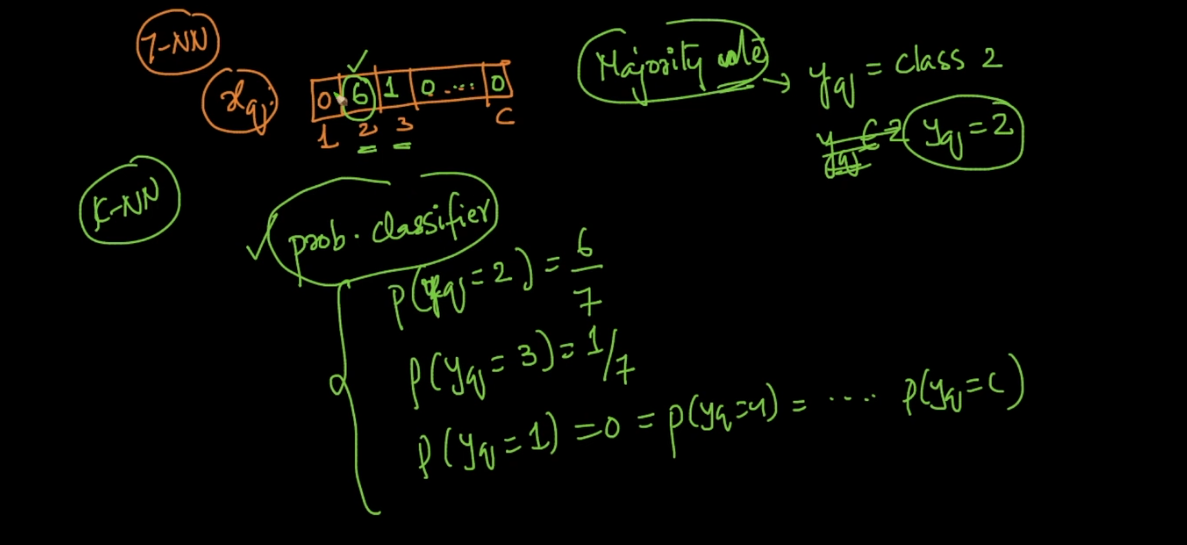 7-NN
x_q: 0 6 1 0 .... 0
1 2 3 C
Majority vote → y_q = class 2
y_q = 2
K-NN
prob. classifier
P(y_q = 2) = 6/7
P(y_q = 3) = 1/7
P(y_q = 1) = 0 = P(y_q = 4) = .... P(y_q = C)